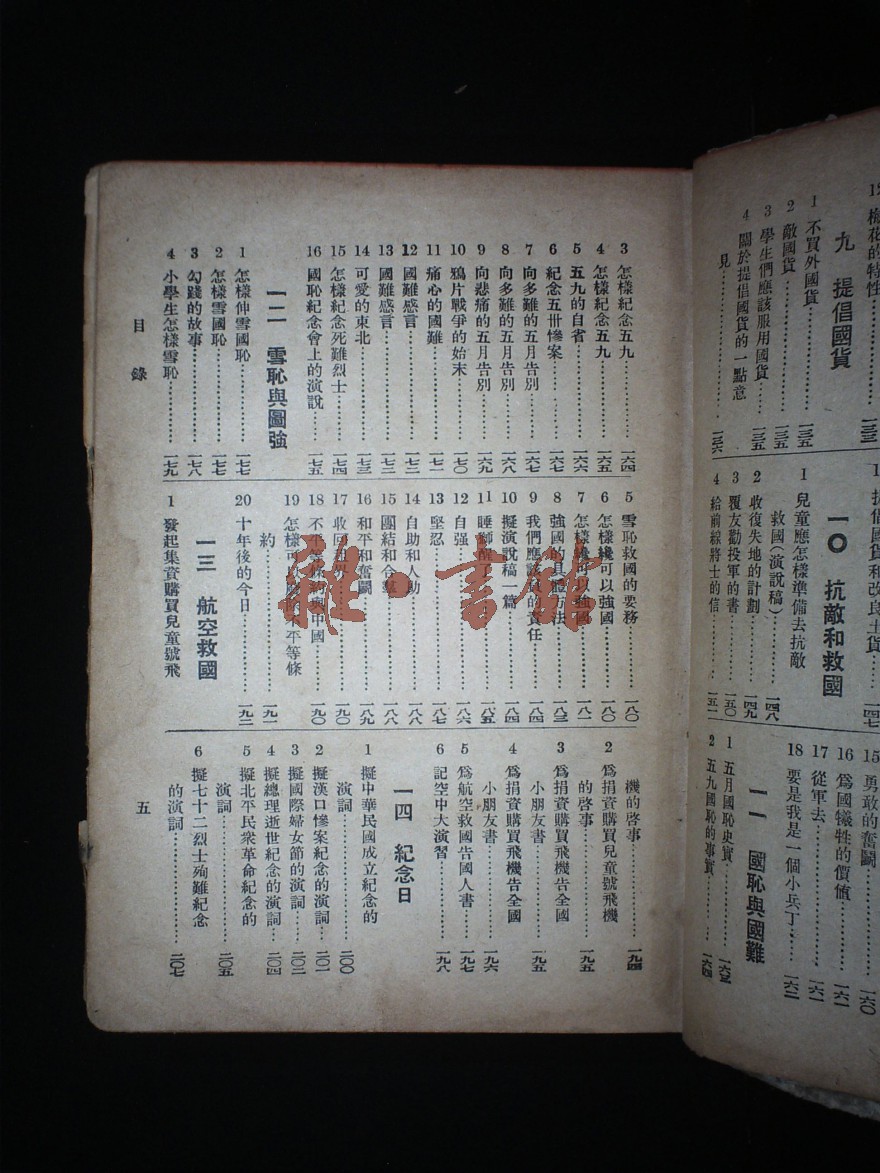 梅花的特性……一三三
九 提倡國貨
1 不買外國貨……一三五
2 敵國貨……一三五
3 學生們應該服用國貨……一三五
4 關於提倡國貨的一點意
見……一三六
提倡國貨和改良土貨……一四七
一〇 抗敵和救國
1 兒童應怎樣準備去抗敵
救國(演說稿)……一四八
2 收復失地的計劃……一四九
3 覆友勸投軍的書……一五〇
4 給前線將士的信……一五一
15 勇敢的奮鬭……一六〇
16 爲國犧牲的價值……一六一
17 從軍去……一六一
18 要是我是一個小兵丁……一六二
一一 國恥與國難
1 五月國恥史實……一六三
2 五九國恥的事實……一六四
3 怎樣紀念五九……一六四
4 怎樣紀念五九……一六五
5 五九的自省……一六六
6 紀念五卅慘案……一六七
7 向多難的五月告別……一六七
8 向多難的五月告別……一六八
9 向悲痛的五月告別……一六九
10 鴉片戰爭的始末……一七〇
11 痛心的國難……一七一
12 國難感言……一七二
13 國難感言……一七三
14 可愛的東北……一七三
15 怎樣紀念死難烈士……一七四
16 國恥紀念會上的演說……一七五
一二 雪恥與圖強
1 怎樣伸雪國恥……一七七
2 怎樣雪國恥……一七七
3 勾踐的故事……一七八
4 小學生怎樣雪恥……一七九
5 雪恥救國的要務……一八〇
6 怎樣纔可以強國……一八〇
7 怎樣纔可以強國……一八一
8 強國的具體方法……一八三
9 我們應該負的責任……一八四
10 擬演說稿一篇……一八四
11 睡獅醒了……一八五
12 自强……一八六
13 堅忍……一八七
14 自助和人助……一八八
15 團結和合羣……一八八
16 和平和奮鬭……一八九
17 收回租界……一九〇
18 不平等條約與中國……一九〇
19 怎樣可以廢除不平等條
約……一九一
20 十年後的今日……一九二
一三 航空救國
1 發起集資購買兒童號飛
機的啓事……一九四
2 爲捐資購買兒童號飛機
的啓事……一九五
3 爲捐資購買飛機告全國
小朋友書……一九五
4 爲捐資購買飛機告全國
小朋友書……一九六
5 爲航空救國告國人書……一九七
6 記空中大演習……一九八
一四 紀念日
1 擬中華民國成立紀念的
演詞……二〇〇
2 擬漢口慘案紀念的演詞……二〇一
3 擬國際婦女節的演詞……二〇二
4 擬總理逝世紀念的演詞……二〇四
5 擬北平民衆革命紀念的
演詞……二〇五
6 擬七十二烈士殉難紀念
的演詞……二〇七
目錄
五
雅·書館